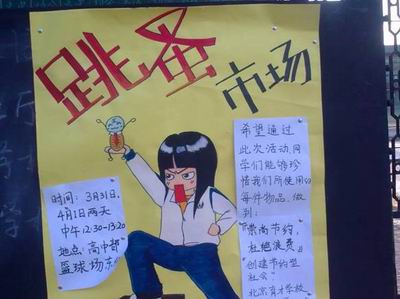 跳蚤
市场
希望通过
此次活动,同
学们能够珍
惜我们所使用的
每件物品,做
到:
"崇尚节约,
杜绝浪费"
"创建节约型
社会"
北京育才学校
时间:3月31日,
4月1日两天
中午12:30-13:20
地点:高中部
篮球场